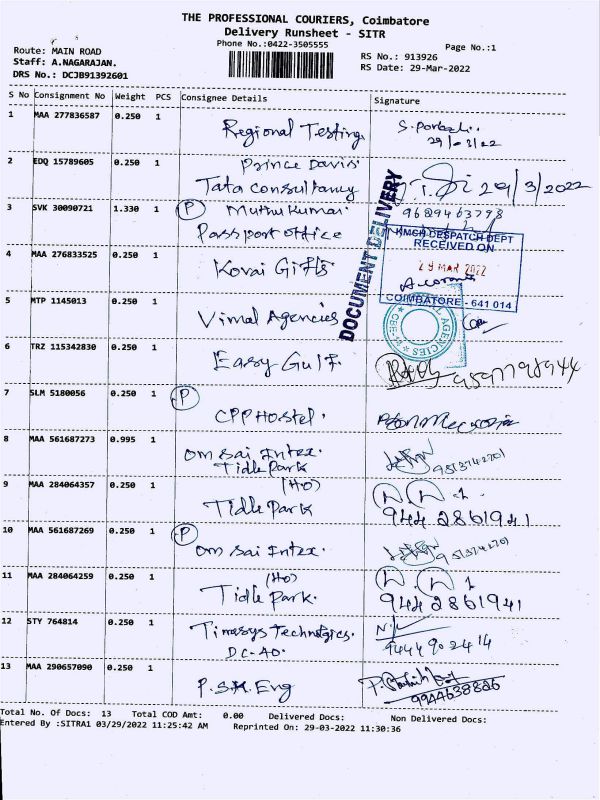 THE PROFESSIONAL COURIERS, Coimbatore
Delivery Runsheet - SITR
Phone No.:0422-3505555
Page No.:1
Route: MAIN ROAD
Staff: A.NAGARAJAN.
DRS No.: DCJB91392601
RS No.: 913926
RS Date: 29-Mar-2022
S No Consignment No Weight PCS Consignee Details Signature
1 MAA 277836587 0.250 1 Regional Testing
29/03/22
2 EDQ 15789605 0.250 1 Prince Davis.
Tata Consultancy 29/3/2022
3 SVK 30090721 1.330 1 (P) Muthu Kumar 9629463798
Passport office
DOCUMENT DELIVERY
KMCH DESPATCH DEPT
RECEIVED ON
29 MAR 2022
COIMBATORE - 641 014
4 MAA 276833525 0.250 1 Kovai Gifts
5 MTP 1145013 0.250 1 Vimal Agencies
AGENCIES
6 TRZ 115342830 0.250 1 Easy Gulf.
7 SLM 5180056 0.250 1 (P)
CPP Hostel.
8 MAA 561687273 0.995 1 om sai Intex.
Tidle Park
9 MAA 284064357 0.250 1 (HO)
Tidle Park 944 2861941
10 MAA 561687269 0.250 1 (P)
om sai Intex.
11 MAA 284064259 0.250 1 (HO)
Tidle Park. 944 2861941
12 STY 764814 0.250 1 Timesys Technologies.
DC-40. 9444902414
13 MAA 290657090 0.250 1 P.S.M. Eng
9944638886
Total No. Of Docs: 13 Total COD Amt: 0.00 Delivered Docs: Non Delivered Docs:
Entered By :SITRA1 03/29/2022 11:25:42 AM Reprinted On: 29-03-2022 11:30:36